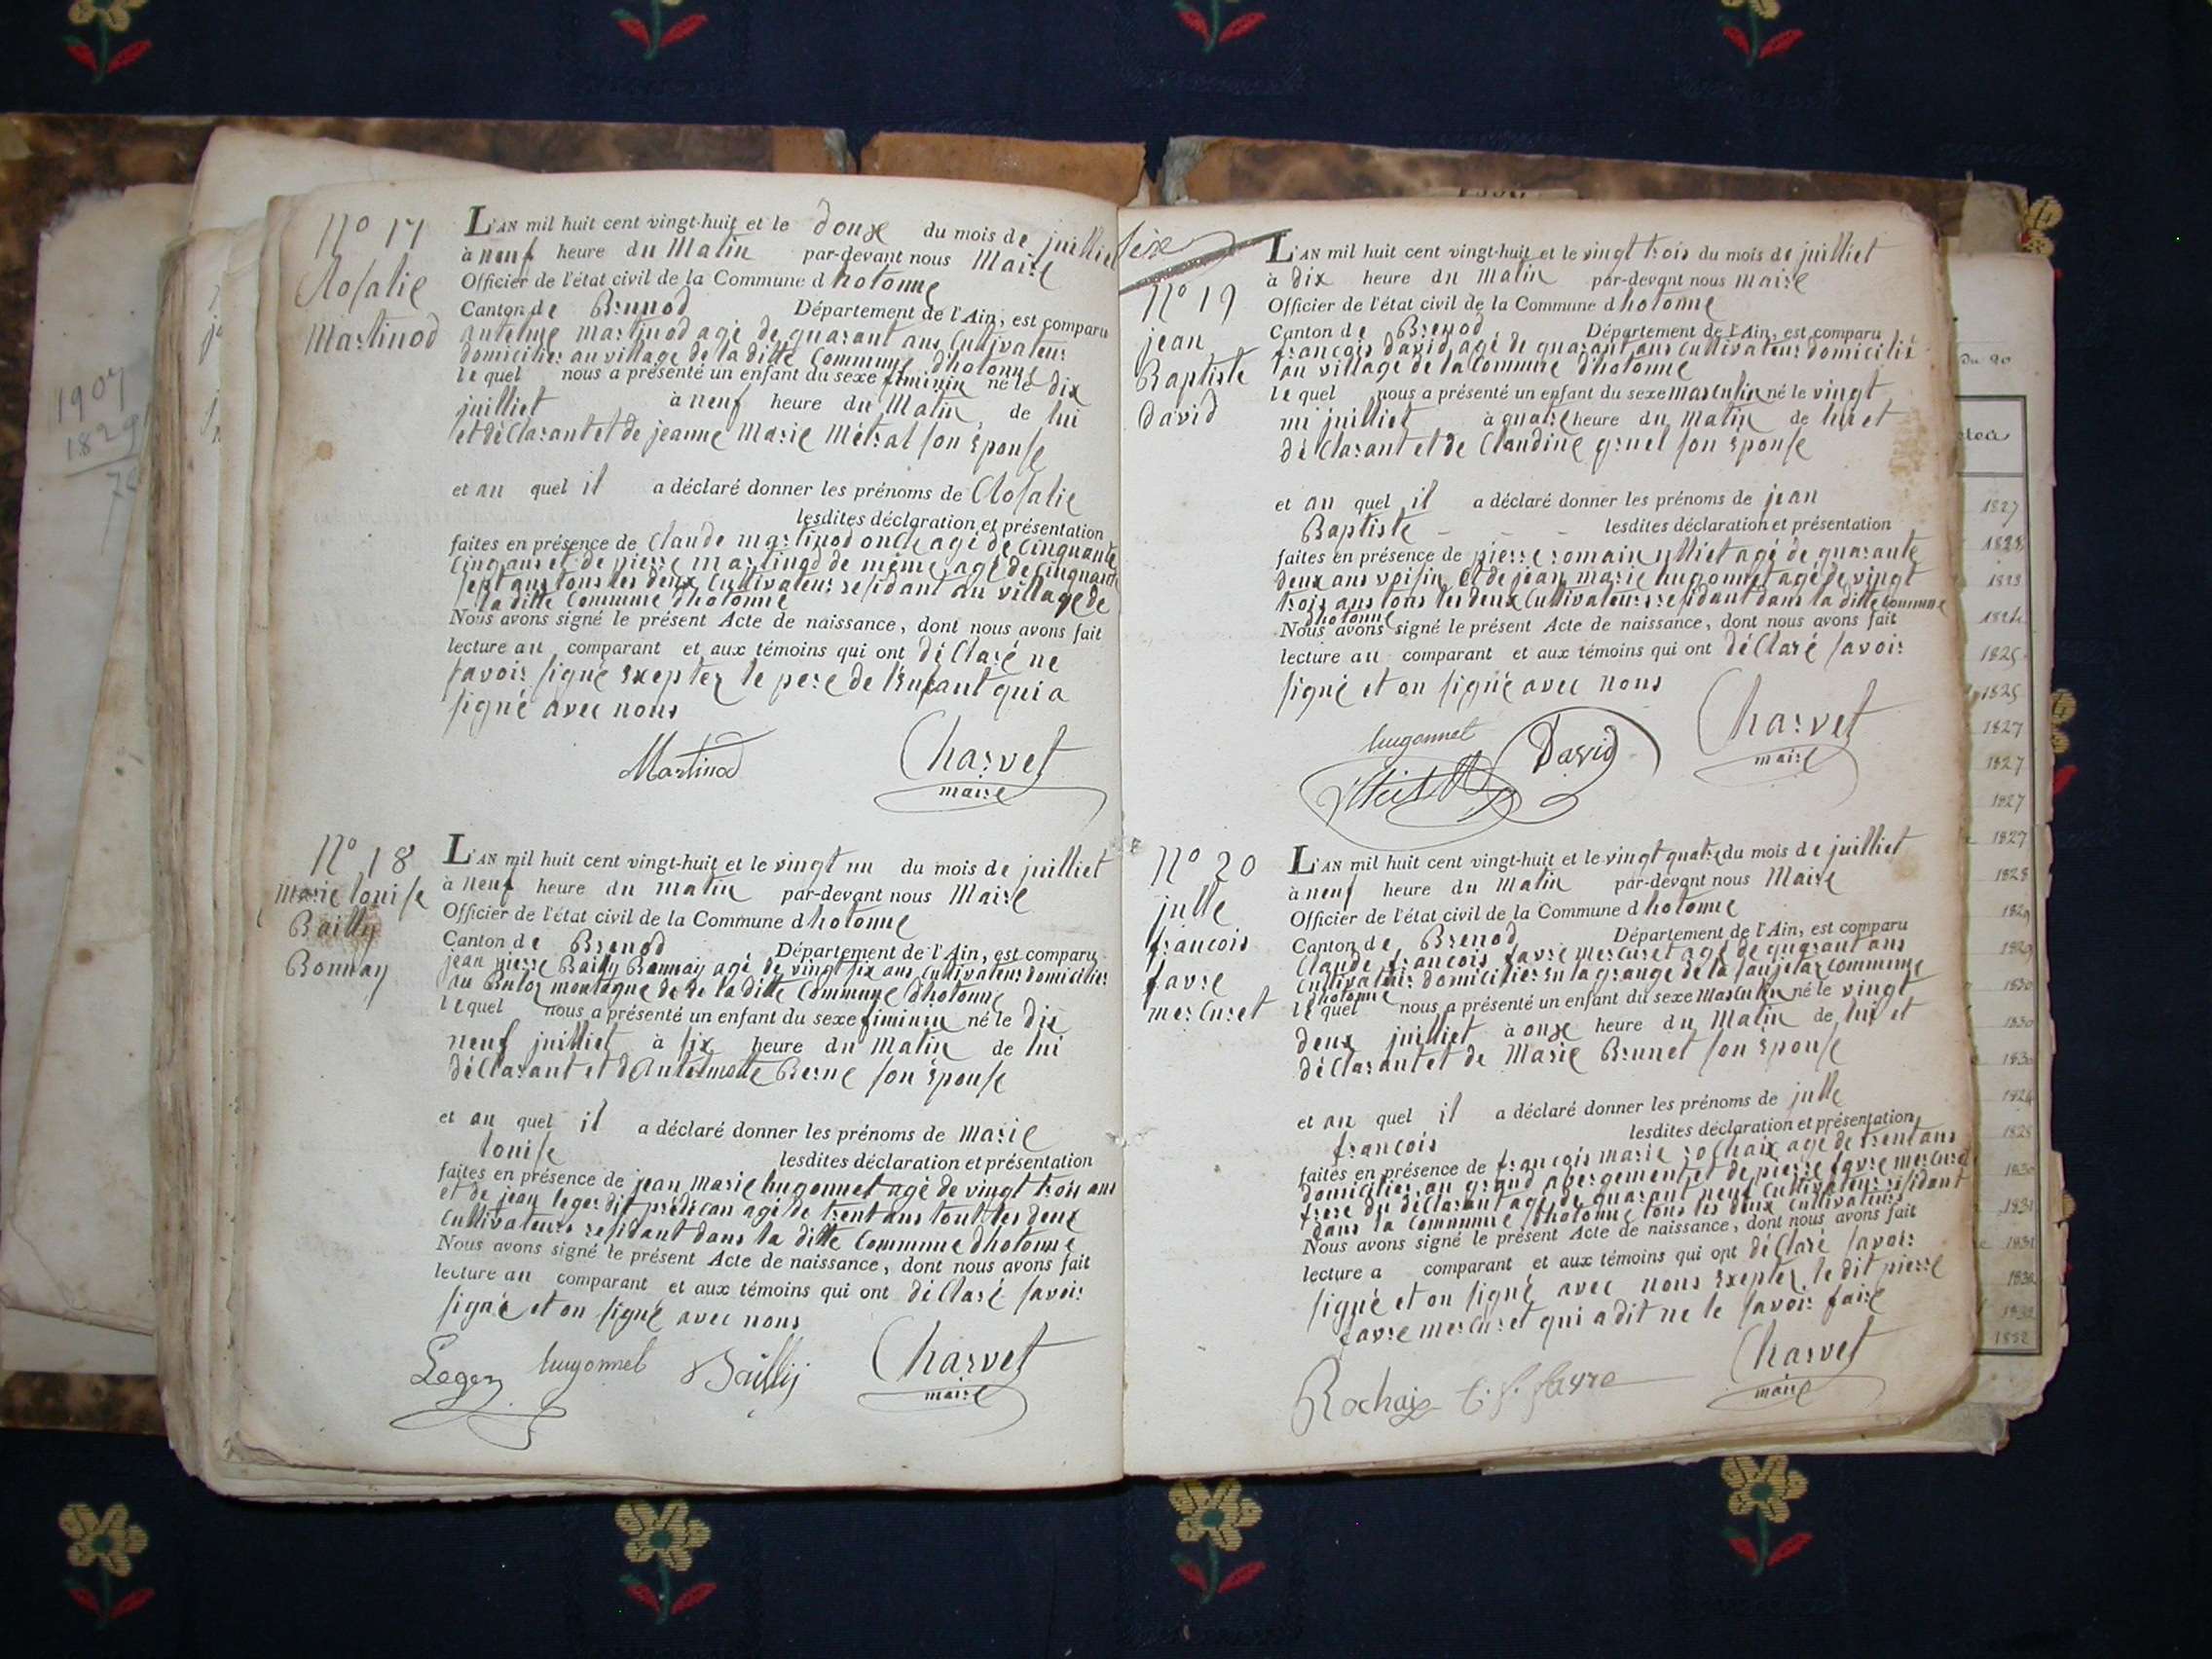 N° 17
Rosalie
Martinod
L'AN mil huit cent vingt-huit et le douze du mois de juilliet
à neuf heure du Matin par-devant nous Maire
Officier de l'état civil de la Commune d hotonne
Canton de Brenod Département de l'Ain, est comparu
antelme martinod agé de quarant ans Cultivateur
domicilier au village de la ditte Commune d'hotonne
le quel nous a présenté un enfant du sexe féminin né le dix
juilliet à neuf heure du Matin de lui
et déClarant et de jeanne Marie Métral son Epouse
et au quel il a déclaré donner les prénoms de Rosalie
lesdites déclaration et présentation
faites en présence de Claude martinod oncle agé de Cinquante
Cinq ans et de pierre martinod de même agé de Cinquante
sept ans tous les deux Cultivateur residant au village de
la ditte Commune d'hotonne
Nous avons signé le présent Acte de naissance, dont nous avons fait
lecture au comparant et aux témoins qui ont déClaré ne
savoir signé Exeptez le pere de l'Enfant qui a
signé avec nous
Martinod Charvet
maire
N° 18
Marie louise
Bailly
Bonnay
L'AN mil huit cent vingt-huit et le vingt un du mois de juilliet
à neuf heure du matin par-devant nous Maire
Officier de l'état civil de la Commune d hotonne
Canton de Brenod Département de l'Ain, est comparu
jean pierre Bailly Bonnay agé de vingt six ans Cultivateur domicilier
au montagne de de la ditte Commune d'hotonne
le quel nous a présenté un enfant du sexe féminin né le dix
neuf juilliet à six heure du Matin de lui
déClarant et d'Antelmette Berne son Epouse
et au quel il a déclaré donner les prénoms de Marie
louise lesdites déclaration et présentation
faites en présence de jean Marie hugonnet agé de vingt trois ans
et de jean leger dit prédican agé de trent ans tout les deux
Cultivateurs residant dans la ditte Commune d'hotonne
Nous avons signé le présent Acte de naissance, dont nous avons fait
lecture au comparant et aux témoins qui ont déClaré savoir
signé et on signé avec nous
Leger hugonnet Bailly Charvet
maire
N° 19
jean
Baptiste
david
L'AN mil huit cent vingt-huit et le vingt trois du mois de juilliet
à dix heure du Matin par-devant nous maire
Officier de l'état civil de la Commune d hotonne
Canton de Brenod Département de l'Ain, est comparu
francois david agé de quarant ans Cultivateur domicilié
au village de la Commune d'hotonne
le quel nous a présenté un enfant du sexe masculin né le vingt
mi juilliet à quatre heure du Matin de lui et
déClarant et de Claudine gruel son Epouse
et au quel il a déclaré donner les prénoms de jean
Baptiste - - - lesdites déclaration et présentation
faites en présence de pierre romain ylliet agé de quarante
deux ans voisin et de jean marie hugonnet agé de vingt
trois ans tous les deux Cultivateurs residant dans la ditte Commune
d'hotonne
Nous avons signé le présent Acte de naissance, dont nous avons fait
lecture au comparant et aux témoins qui ont déClaré savoir
signé et on signé avec nous
hugonnet David Charvet
maire
N° 20
julle
francois
favre
mercuret
L'AN mil huit cent vingt-huit et le vingt quatre du mois de juilliet
à neuf heure du Matin par-devant nous Maire
Officier de l'état civil de la Commune d hotonne
Canton de Brenod Département de l'Ain, est comparu
Claude francois favre mercuret agé de quarant ans
Cultivateur domicilier en la grange de la Commune
d'hotonne
le quel nous a présenté un enfant du sexe Masculin né le vingt
deux juilliet à onze heure du Matin de lui et
déClarant et de Marie Brunet son Epouse
et au quel il a déclaré donner les prénoms de julle
francois lesdites déclaration et présentation
faites en présence de francois marie rochaix agé de trent ans
domicilier au grand abergement et de pierre favre mercuret
frere du déClarant agé de quarant neuf Cultivateur residant
dans la Commune d'hotonne tous les deux Cultivateurs
Nous avons signé le présent Acte de naissance, dont nous avons fait
lecture a comparant et aux témoins qui ont déClaré savoir
signé et on signé avec nous Exeptez le dit pierre
favre mercuret qui a dit ne le savoir faire
Rochaix C. f. favre Charvet
maire
1907
1829
du 20
1827
1828
1825
1825
1827
1827
1827
1827
1828
1829
1830
1830
1830
1831
1831
1832